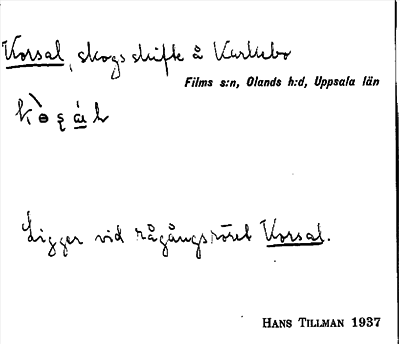 Korsal, skogsskifte å Karlebo
Films s:n, Olands h:d, Uppsala län
Ligger vid rågångsröset Korsal.
HANS TILLMAN 1937